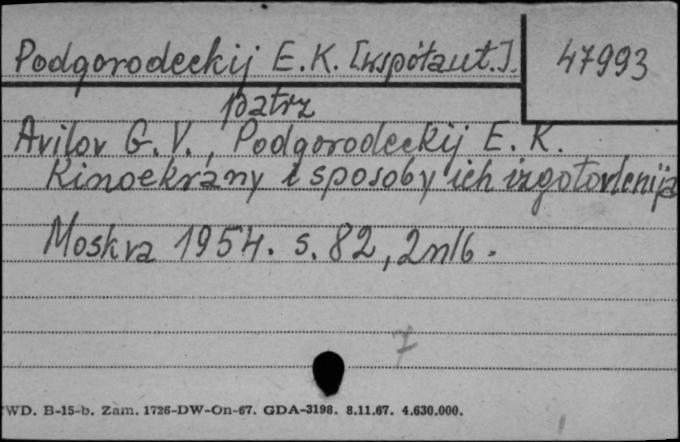 Podgorodeckij E. K. [współaut.].
47993
patrz
Avilov G. V., Podgorodeckij E. K.
Kinoekrány i sposoby ich izgotovlenija
Moskva 1954. s. 82, 2nlb.
7
WD. B-15-b. Zam. 1726-DW-On-67. GDA-3198. 8.11.67. 4.630.000.